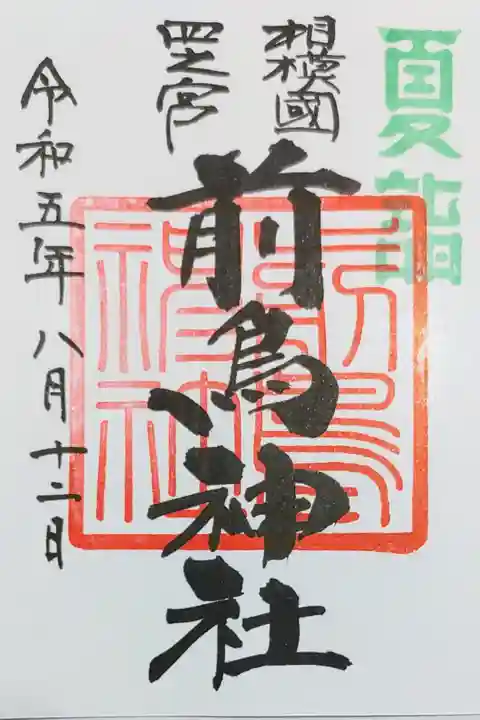 夏詣
相模國
四之宮
前鳥神社
令和五年八月十二日